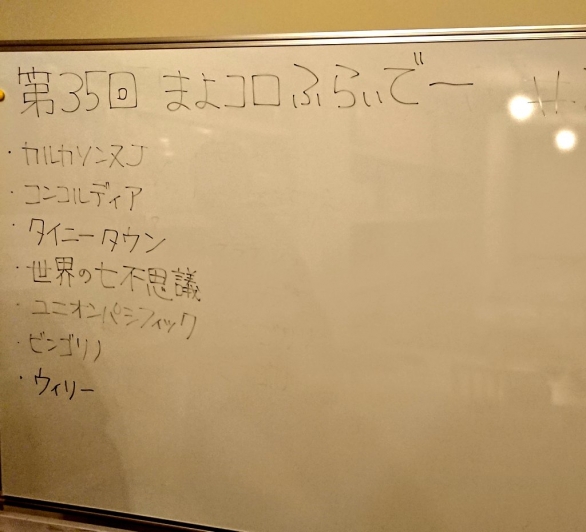 第35回 まよコロふらいで〜
・カルカソンヌJ
・コンコルディア
・タイニータウン
・世界の七不思議
・ユニオンパシフィック
・ビンゴリノ
・ウィリー